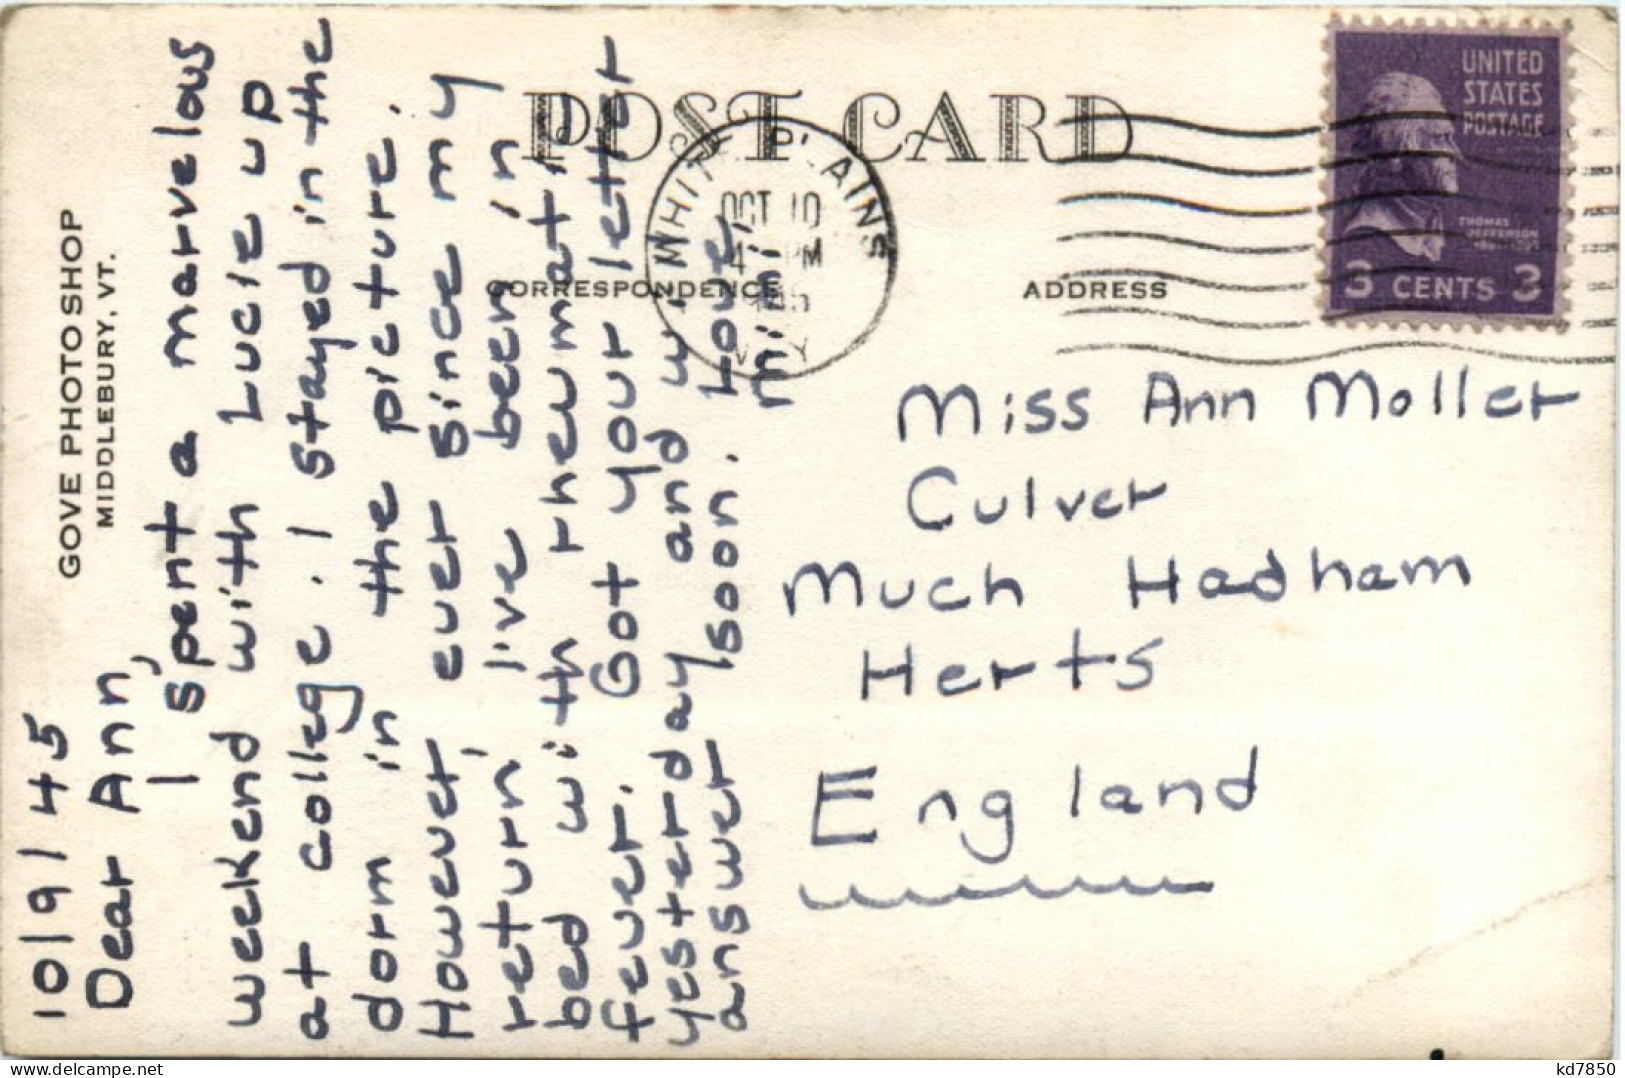 POST CARD
CORRESPONDENCE
ADDRESS
GOVE PHOTO SHOP
MIDDLEBURY, VT.
10/9/45
Dear Ann,
I spent a marvelous
weekend with Lucie up
at college. I stayed in the
dorm in the picture.
However, ever since my
return, I've been in
bed with rheumatic
fever. Got your letter
yesterday and will
answer soon. Love,
Mimi
WHITE PLAINS
OCT 10
4 PM
N.Y.
UNITED
STATES
POSTAGE
THOMAS
JEFFERSON
3 CENTS 3
Miss Ann Moller
Culver
Much Hadham
Herts
England
kd7850